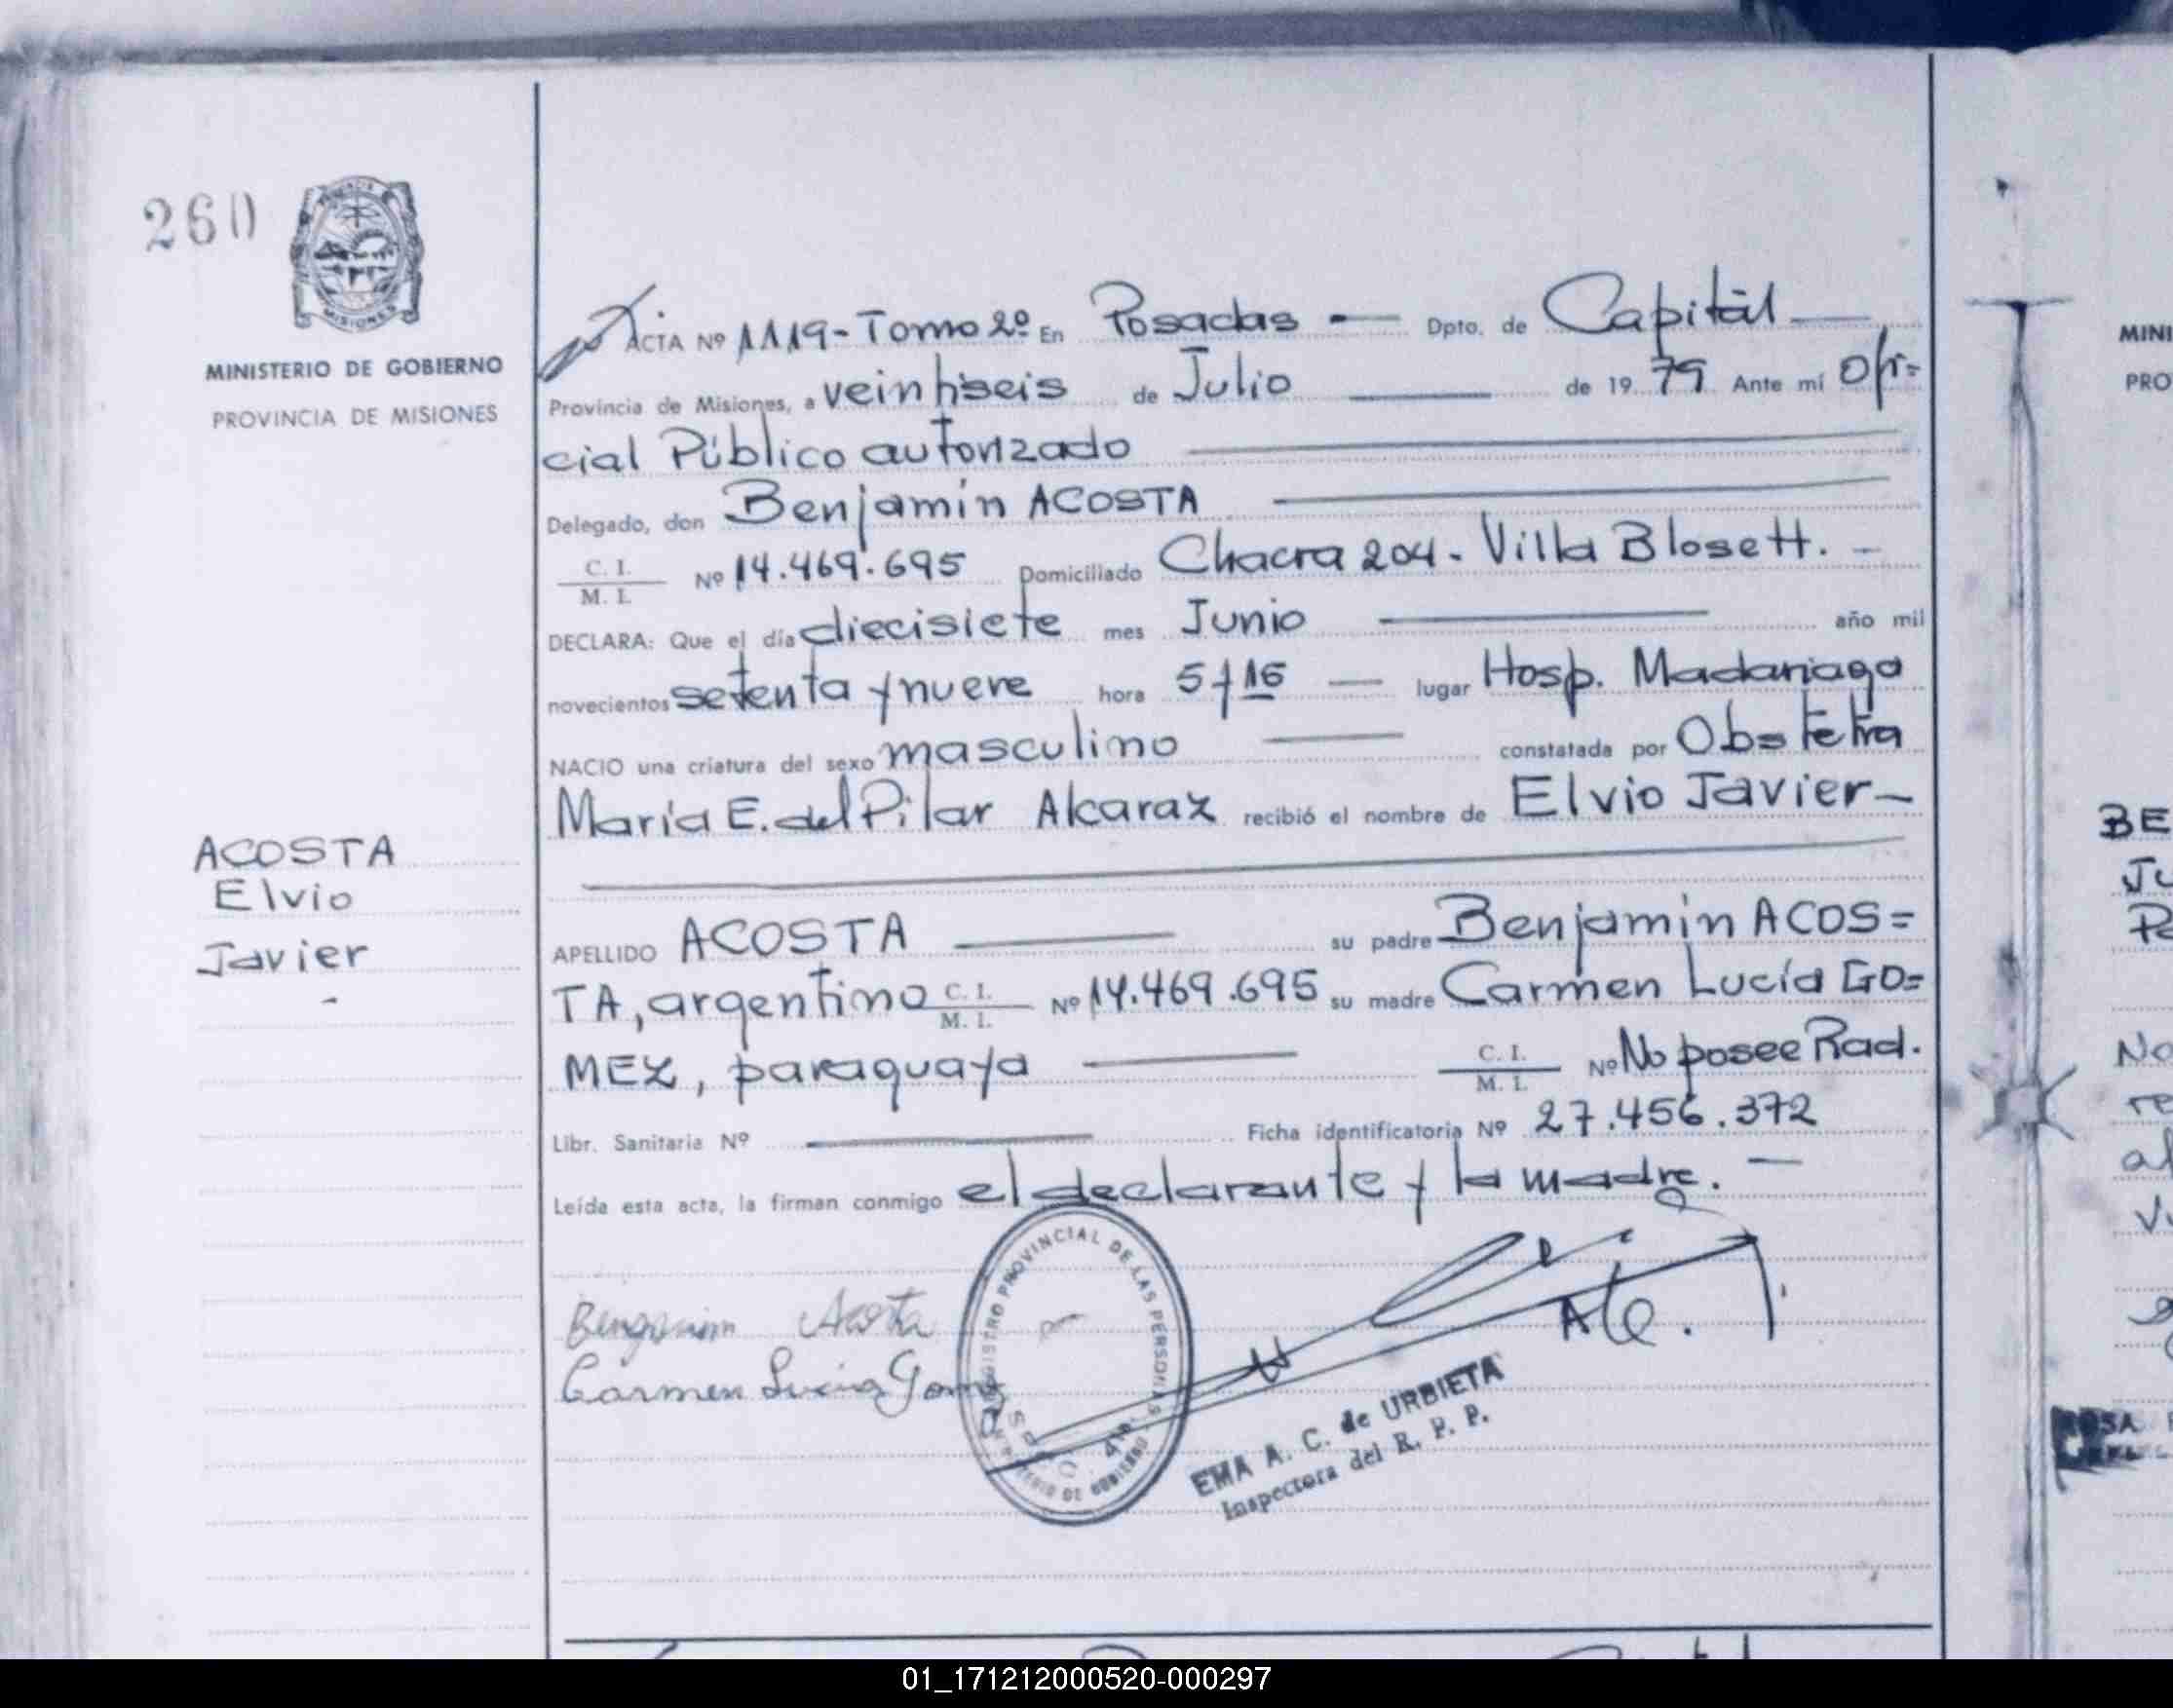 260
MISIONES
MINISTERIO DE GOBIERNO
PROVINCIA DE MISIONES
ACTA Nº 1119-Tomo 2º En Posadas — Dpto. de Capital —
Provincia de Misiones, a veintiseis de Julio — de 1979 Ante mí Ofi=
cial Público autorizado
Delegado, don Benjamín ACOSTA
C. I.
M. I.
Nº 14.469.695 Domiciliado Chacra 204 - Villa Blosett. -
DECLARA: Que el día diecisiete mes Junio — año mil
novecientos setenta y nueve hora 5 y 15 — lugar Hosp. Madariaga
NACIO una criatura del sexo masculino — constatada por Obstetra
María E. del Pilar Alcaraz recibió el nombre de Elvio Javier —
ACOSTA
Elvio
Javier
-
APELLIDO ACOSTA — su padre Benjamín ACOS=
TA, argentino C. I. M. I. Nº 14.469.695 su madre Carmen Lucía GO=
MEZ, paraguaya — C. I. M. I. Nº No posee Rad.
Libr. Sanitaria Nº — Ficha identificatoria Nº 27.456.372
Leída esta acta, la firman conmigo el declarante y la madre. —
Acosta
Carmen Lucia Gomez
REGISTRO PROVINCIAL DE LAS PERSONAS
EMA A. C. de URBIETA
Inspectora del R. P. P.
MINI
PRO
BE
Ju
Pe
No
re
al
01_171212000520-000297